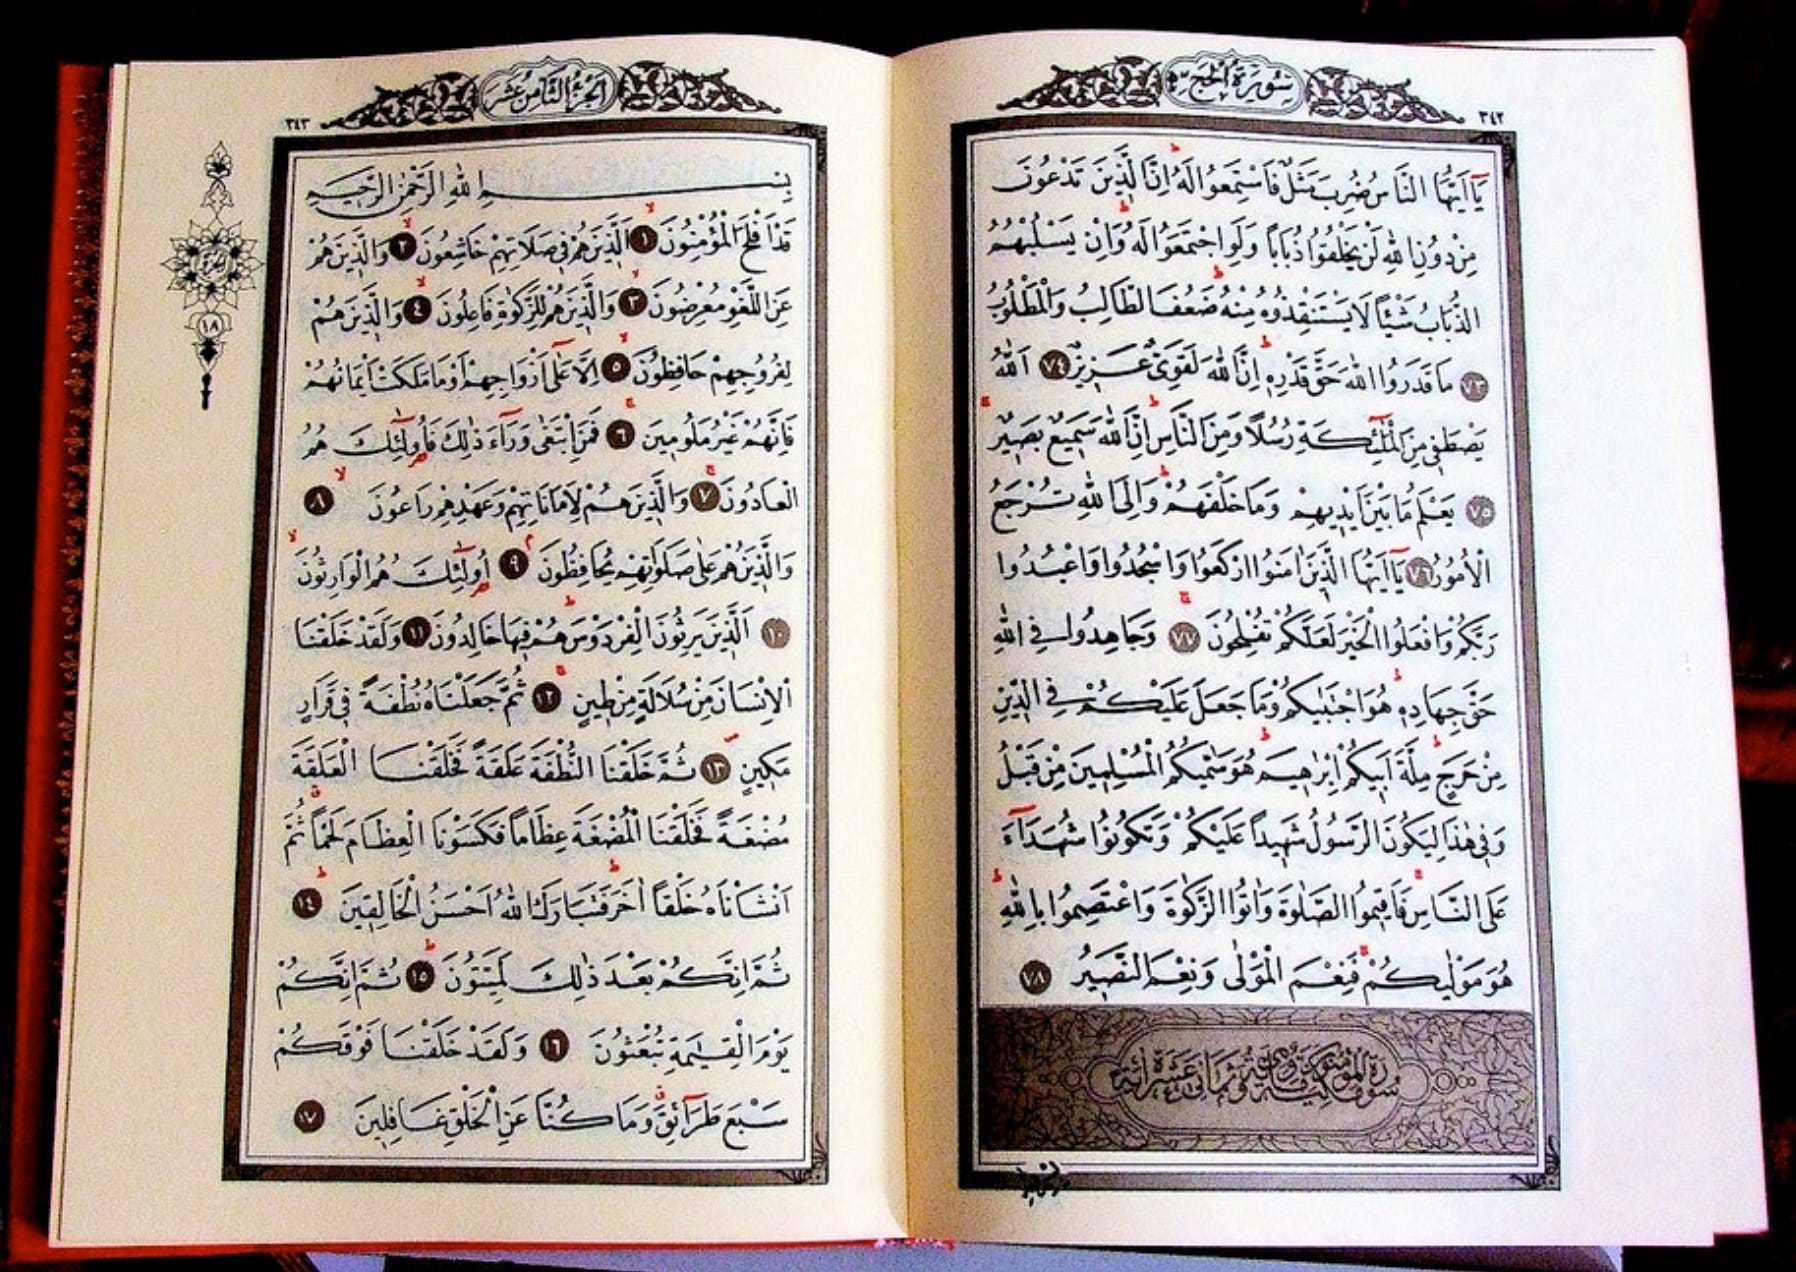 سُورَةُ الْحَجِّ
٣٤٢
يَٓا اَيُّهَا النَّاسُ ضُرِبَ مَثَلٌ فَاسْتَمِعُوا لَهُۜ اِنَّ الَّذٖينَ تَدْعُونَ
مِنْ دُونِ اللّٰهِ لَنْ يَخْلُقُوا ذُبَاباً وَلَوِ اجْتَمَعُوا لَهُۜ وَاِنْ يَسْلُبْهُمُ
الذُّبَابُ شَيْـٔاً لَا يَسْتَنْقِذُوهُ مِنْهُۜ ضَعُفَ الطَّالِبُ وَالْمَطْلُوبُ
﴿٧٣﴾ مَا قَدَرُوا اللّٰهَ حَقَّ قَدْرِهٖۜ اِنَّ اللّٰهَ لَقَوِيٌّ عَزٖيزٌ ﴿٧٤﴾ اَللّٰهُ
يَصْطَفٖي مِنَ الْمَلٰٓئِكَةِ رُسُلاً وَمِنَ النَّاسِۜ اِنَّ اللّٰهَ سَمٖيعٌ بَصٖيرٌۚ
﴿٧٥﴾ يَعْلَمُ مَا بَيْنَ اَيْدٖيهِمْ وَمَا خَلْفَهُمْۜ وَاِلَى اللّٰهِ تُرْجَعُ
الْاُمُورُ ﴿٧٦﴾ يَٓا اَيُّهَا الَّذٖينَ اٰمَنُوا ارْكَعُوا وَاسْجُدُوا وَاعْبُدُوا
رَبَّكُمْ وَافْعَلُوا الْخَيْرَ لَعَلَّكُمْ تُفْلِحُونَۚ ﴿٧٧﴾ وَجَاهِدُوا فِي اللّٰهِ
حَقَّ جِهَادِهٖۜ هُوَ اجْتَبٰيكُمْ وَمَا جَعَلَ عَلَيْكُمْ فِي الدّٖينِ
مِنْ حَرَجٍۜ مِلَّةَ اَبٖيكُمْ اِبْرٰهٖيمَۜ هُوَ سَمّٰيكُمُ الْمُسْلِمٖينَ مِنْ قَبْلُ
وَفٖي هٰذَا لِيَكُونَ الرَّسُولُ شَهٖيداً عَلَيْكُمْ وَتَكُونُوا شُهَدَٓاءَ
عَلَى النَّاسِۚ فَاَقٖيمُوا الصَّلٰوةَ وَاٰتُوا الزَّكٰوةَ وَاعْتَصِمُوا بِاللّٰهِۜ
هُوَ مَوْلٰيكُمْۚ فَنِعْمَ الْمَوْلٰى وَنِعْمَ النَّصٖيرُ ﴿٧٨﴾
اَلْجُزْءُ الثَّامِنُ عَشَرَ
٣٤٣
١٨
بِسْمِ اللّٰهِ الرَّحْمٰنِ الرَّحٖيمِ
قَدْ اَفْلَحَ الْمُؤْمِنُونَۙ ﴿١﴾ اَلَّذٖينَ هُمْ فٖي صَلَاتِهِمْ خَاشِعُونَۙ ﴿٢﴾ وَالَّذٖينَ هُمْ
عَنِ اللَّغْوِ مُعْرِضُونَۙ ﴿٣﴾ وَالَّذٖينَ هُمْ لِلزَّكٰوةِ فَاعِلُونَۙ ﴿٤﴾ وَالَّذٖينَ هُمْ
لِفُرُوجِهِمْ حَافِظُونَۙ ﴿٥﴾ اِلَّا عَلٰٓى اَزْوَاجِهِمْ اَوْ مَا مَلَكَتْ اَيْمَانُهُمْ
فَاِنَّهُمْ غَيْرُ مَلُومٖينَۚ ﴿٦﴾ فَمَنِ ابْتَغٰى وَرَٓاءَ ذٰلِكَ فَاُو۬لٰٓئِكَ هُمُ
الْعَادُونَۚ ﴿٧﴾ وَالَّذٖينَ هُمْ لِاَمَانَاتِهِمْ وَعَهْدِهِمْ رَاعُونَۙ ﴿٨﴾
وَالَّذٖينَ هُمْ عَلٰى صَلَوَاتِهِمْ يُحَافِظُونَۢ ﴿٩﴾ اُو۬لٰٓئِكَ هُمُ الْوَارِثُونَۙ
﴿١٠﴾ اَلَّذٖينَ يَرِثُونَ الْفِرْدَوْسَۜ هُمْ فٖيهَا خَالِدُونَ ﴿١١﴾ وَلَقَدْ خَلَقْنَا
الْاِنْسَانَ مِنْ سُلَالَةٍ مِنْ طٖينٍۚ ﴿١٢﴾ ثُمَّ جَعَلْنَاهُ نُطْفَةً فٖي قَرَارٍ
مَكٖينٍۖ ﴿١٣﴾ ثُمَّ خَلَقْنَا النُّطْفَةَ عَلَقَةً فَخَلَقْنَا الْعَلَقَةَ
مُضْغَةً فَخَلَقْنَا الْمُضْغَةَ عِظَاماً فَكَسَوْنَا الْعِظَامَ لَحْماًࣗ ثُمَّ
اَنْشَأْنَاهُ خَلْقاً اٰخَرَۜ فَتَبَارَكَ اللّٰهُ اَحْسَنُ الْخَالِقٖينَۜ ﴿١٤﴾
ثُمَّ اِنَّكُمْ بَعْدَ ذٰلِكَ لَمَيِّتُونَۜ ﴿١٥﴾ ثُمَّ اِنَّكُمْ
يَوْمَ الْقِيٰمَةِ تُبْعَثُونَ ﴿١٦﴾ وَلَقَدْ خَلَقْنَا فَوْقَكُمْ
سَبْعَ طَرَٓائِقَࣗ وَمَا كُنَّا عَنِ الْخَلْقِ غَافِلٖينَ ﴿١٧﴾